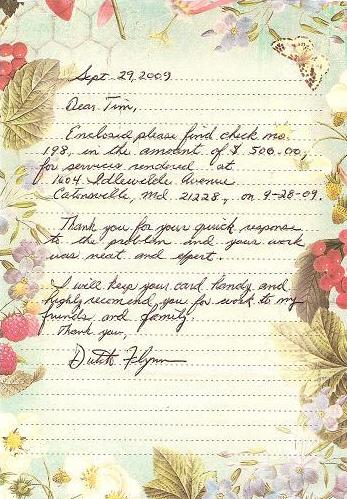 Sept 29, 2009
Dear Tim,
Enclosed please find check no.
198, in the amount of $ 500.00,
for services rendered at
1604 Idlewilde Avenue
Catonsville, Md 21228, on 9-28-09.
Thank you for your quick response
to the problem and your work
was neat and expert.
I will keep your card handy and
highly recomend you for work to my
friends and family.
Thank you,
Dutch Flynn